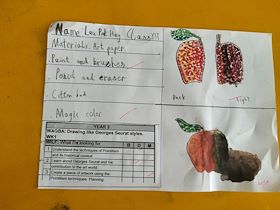 Name Lou Pak Hng Class
Materials: Art paper.
Paint and brushes
Pencil and eraser
Cotton bud
Magic color
Dark
Light
YEAR 3
WAGBA: Drawing like Georges Seurat styles.
WK1
WILF: What I'm looking for B D M
1 Understand the techniques of Pointillism and its historical context
2 Learn about Georges Seurat and his contribution to the art world.
3 Create a piece of artwork using the Pointillism techniques: Planning